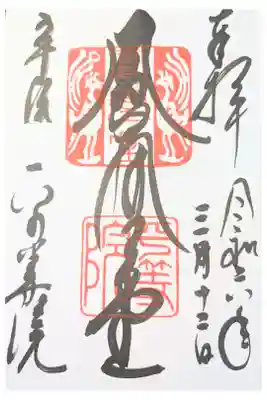 奉拝
令和六年
三月十三日
鳳凰堂
平等院
平等院